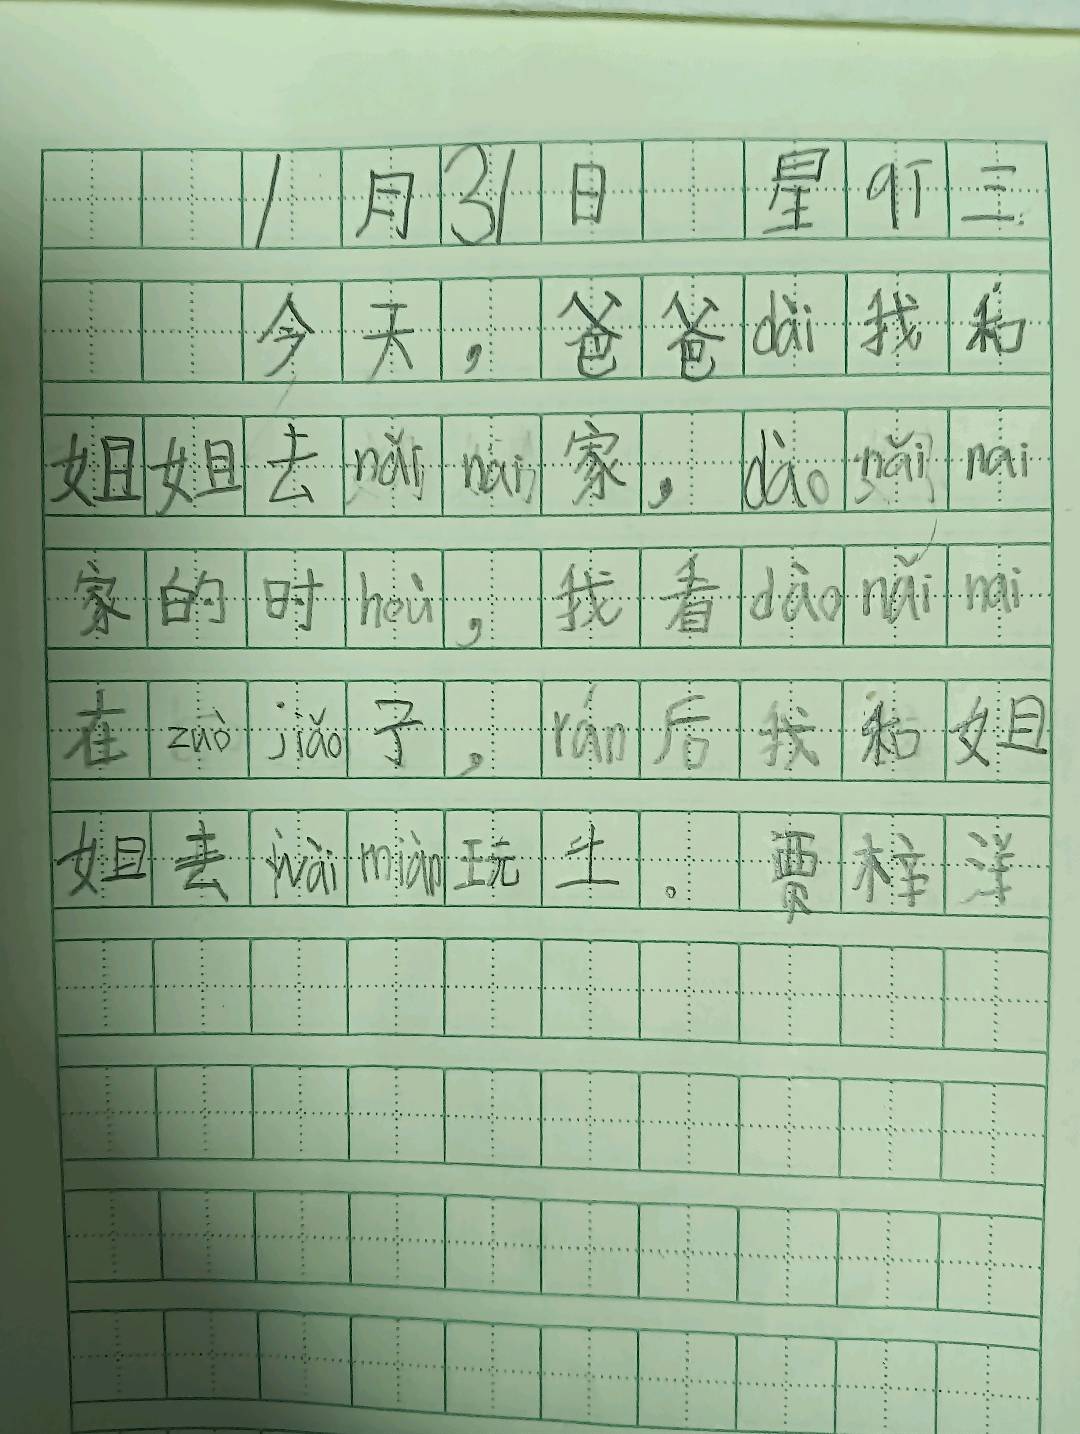 1月31日 星q丁三
今天，爸爸dài找和
姐姐去nǎi nai家，dào nǎi nai
家的时hoù，找看dào nǎi nai
在zuò jiǎo子，rán后我和姐
姐去wài miàn玩土。贾梓洋